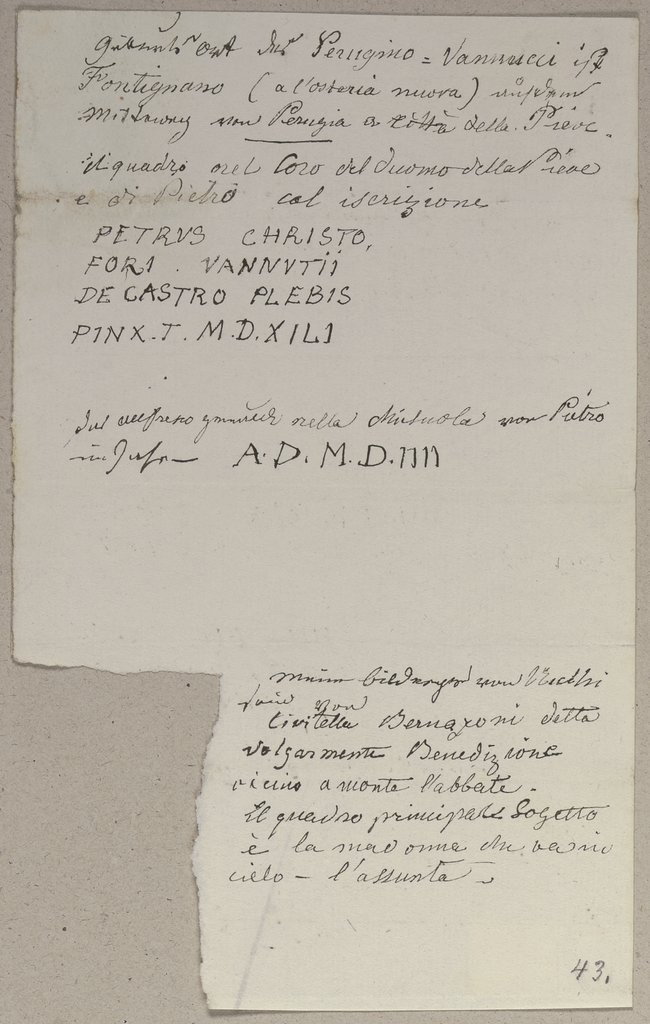 Geburts Ort des Perugino = Vannucci ist
Fontignano (a l'osteria nuova) auf dem
Mittelweg von Perugia a Città della Pieve
il quadro nel Coro del duomo della Pieve
e di Pietro col iscrizione
PETRVS CHRISTO,
FORI . VANNVTII
DE CASTRO PLEBIS
PINX.T. M.D.XIIII
das alfresco nella von Pietro
im Jahr A.D. M.D.IIII
meine von
sind von
Civitella Bernazoni detta
volgarmente Benedizione
vicino a monte l'abbate.
Il quadro principale Sogetto
è la madonna che va in
cielo - l'assunta
43.